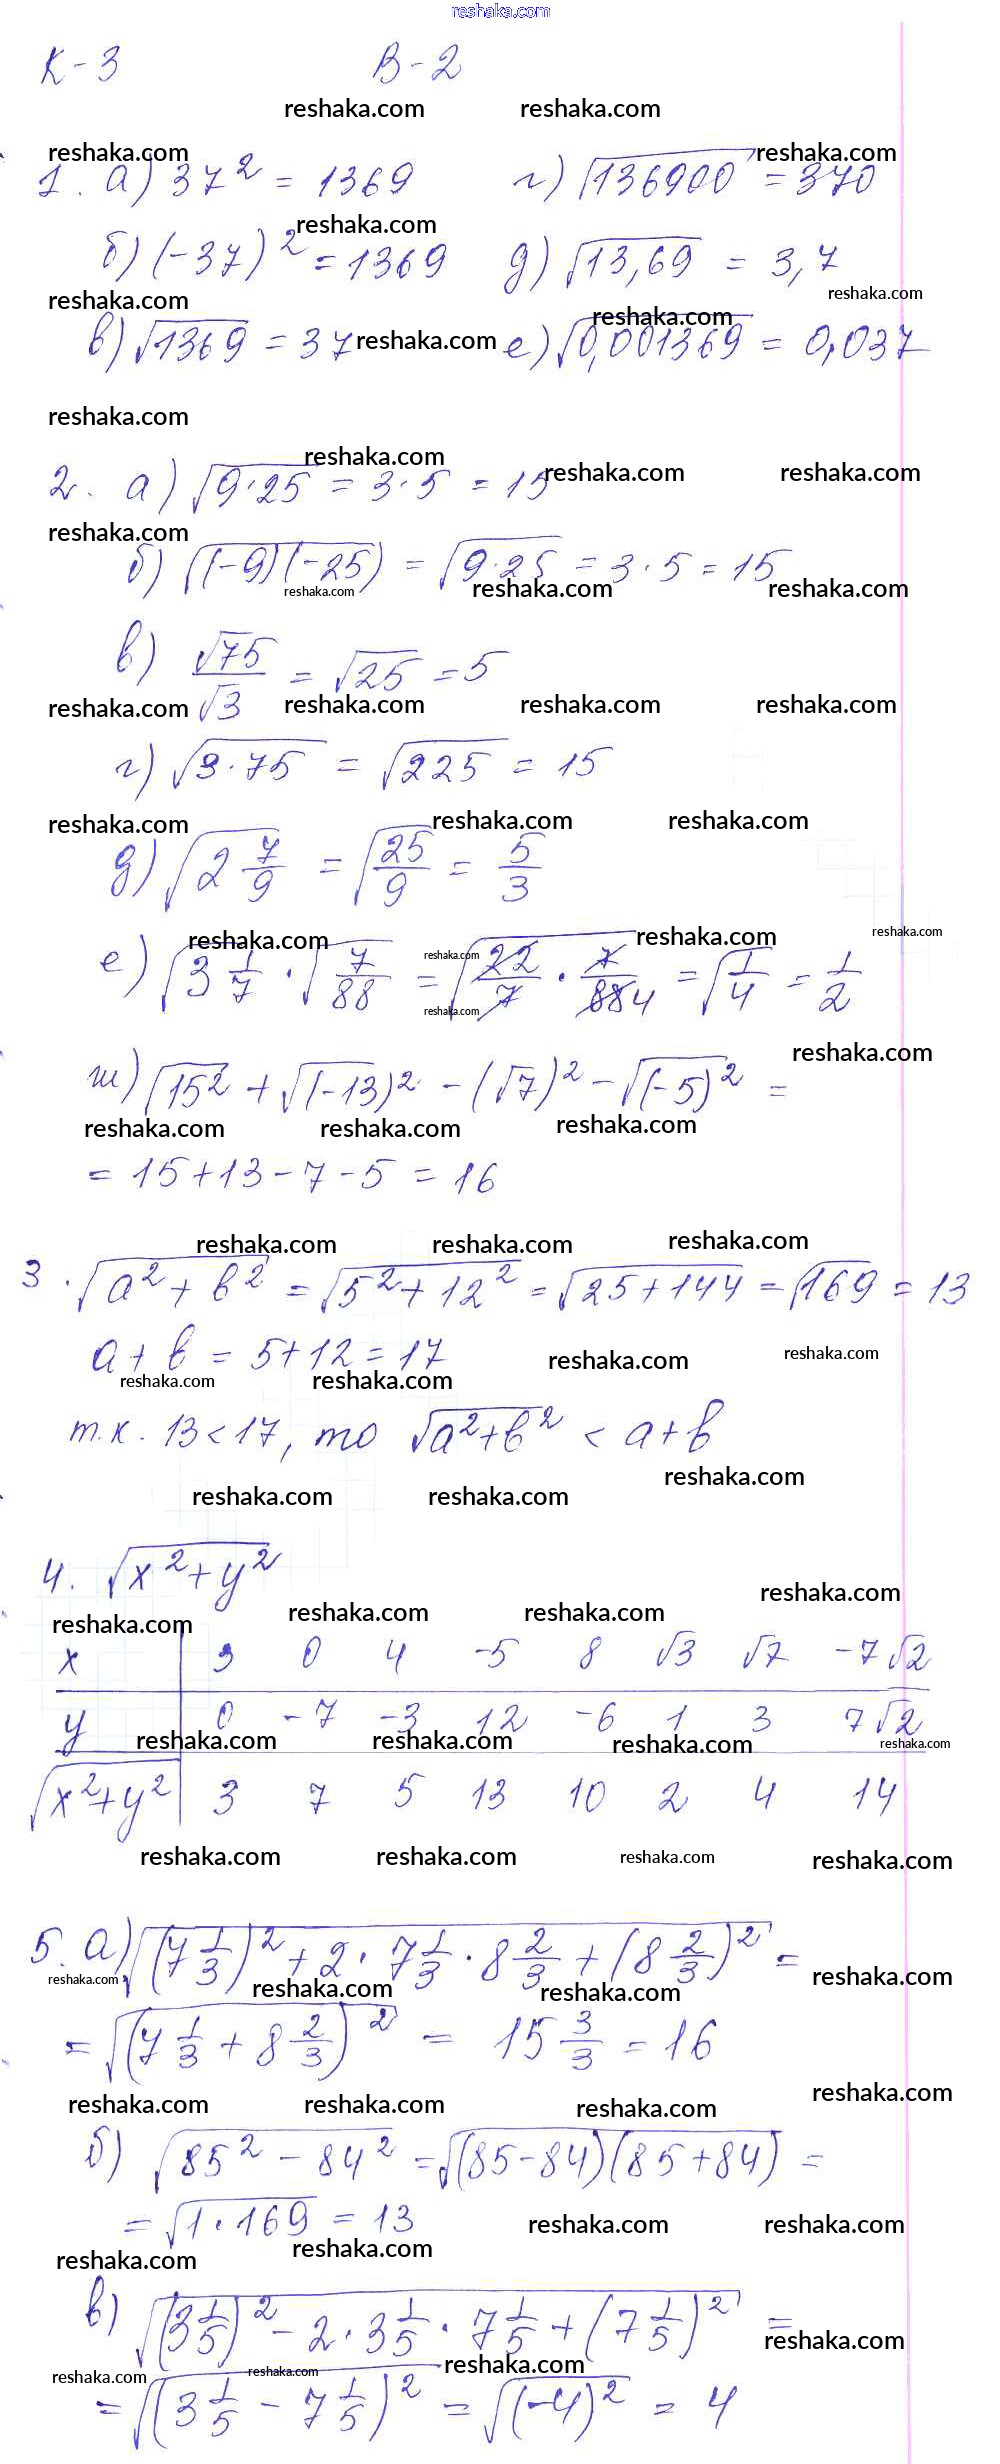 reshaka.com
К-3 В-2
reshaka.com reshaka.com
reshaka.com reshaka.com
1. а) 37² = 1369 г) √136900 = 370
reshaka.com
б) (-37)² = 1369 д) √13,69 = 3,7
reshaka.com reshaka.com
reshaka.com
в) √1369 = 37 reshaka.com е) √0,001369 = 0,037
reshaka.com
reshaka.com
2. а) √9·25 = 3·5 = 15 reshaka.com reshaka.com
reshaka.com
б) √(-9)(-25) = √9·25 = 3·5 = 15
reshaka.com reshaka.com reshaka.com
в) √75/√3 = √25 = 5
reshaka.com reshaka.com reshaka.com reshaka.com
г) √3·75 = √225 = 15
reshaka.com reshaka.com reshaka.com
д) √2 7/9 = √25/9 = 5/3
reshaka.com reshaka.com reshaka.com
reshaka.com
е) √3 1/7 · √7/88 = √22/7 · 7/88 4 = √1/4 = 1/2
reshaka.com
reshaka.com
ж) √15² + √(-13)² - (√7)² - √(-5)² =
reshaka.com reshaka.com reshaka.com
= 15+13-7-5 = 16
reshaka.com reshaka.com reshaka.com
3. √a²+b² = √5²+12² = √25+144 = √169 = 13
a+b = 5+12 = 17 reshaka.com reshaka.com
reshaka.com reshaka.com
т.к. 13<17, то √a²+b² < a+b
reshaka.com
reshaka.com reshaka.com
4. √x²+y²
reshaka.com
reshaka.com reshaka.com reshaka.com
x 3 0 4 -5 8 √3 √7 -7√2
y 0 -7 -3 12 -6 1 3 7√2
reshaka.com reshaka.com reshaka.com reshaka.com
√x²+y² 3 7 5 13 10 2 4 14
reshaka.com reshaka.com reshaka.com reshaka.com
5. а) √(7 1/3)² + 2·7 1/3·8 2/3 + (8 2/3)² =
reshaka.com reshaka.com reshaka.com reshaka.com
= √(7 1/3 + 8 2/3)² = 15 3/3 = 16
reshaka.com reshaka.com reshaka.com reshaka.com
б) √85² - 84² = √(85-84)(85+84) =
= √1·169 = 13 reshaka.com reshaka.com
reshaka.com reshaka.com
в) √(3 1/5)² - 2·3 1/5·7 1/5 + (7 1/5)² =
reshaka.com
reshaka.com reshaka.com reshaka.com
= √(3 1/5 - 7 1/5)² = √(-4)² = 4